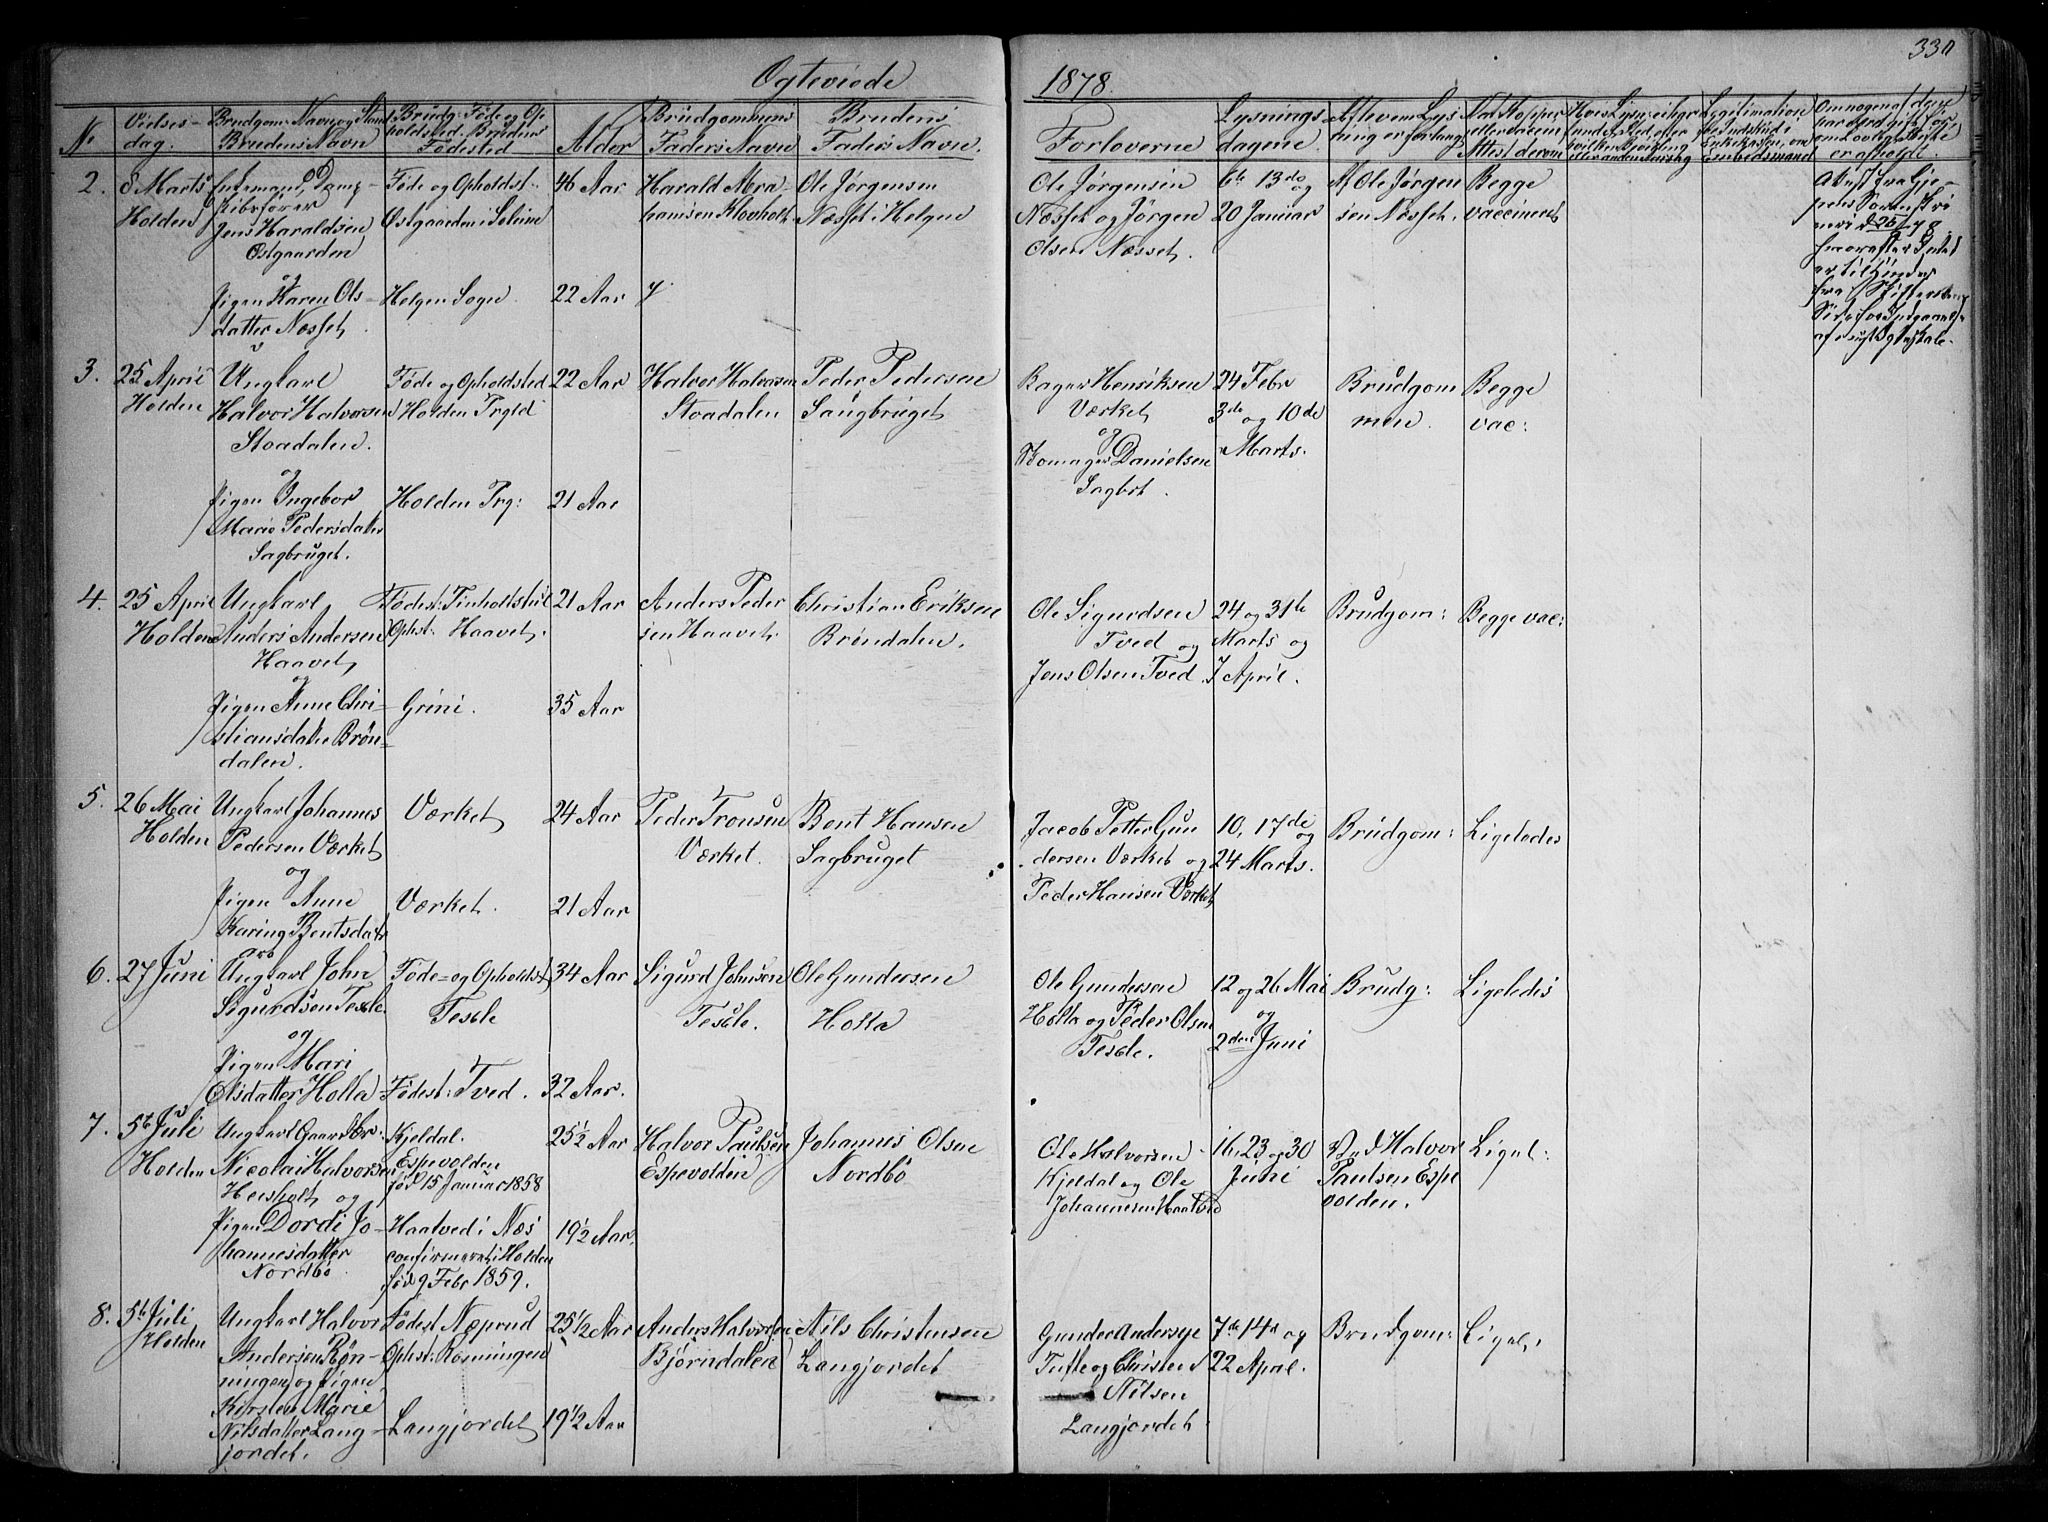 Ogteviede
1878.
330
No
Vielses-
dag.
Brudgom: Navn og Stand
Brudens Navn
Brudg. Føde og Op
holdsted. Brudens
Fødested
Alder
Brudgommens
Faders Navn
Brudens
Faders Navn.
Forloverne
Lysnings
dagene.
Af hvem Lys
ning er forlangt
Nat. Kopper
eller vaccin
Attest derom
Embedsmand
er afholdt.
2.
8 Marts
Holden
Enkemand, Damp-
skibsfører
Jens Haraldsen
Østgaarden
og
Pigen Karen Ols-
datter Næsset
Føde og Opholdst:
Ostgaarden i Solum
Helgen Sogn.
46 Aar
22 Aar
Harald Abra-
hamsen Klovholt
Ole Jørgensen
Næsset i Helgen
Ole Jørgensen
Næsset og Jørgen
Olsen Næsset.
6te 13de og
20 Januar
Af Ole Jørgen
sen Næsset.
Begge
vaccineret
3.
25 April
Holden
Ungkarl
Halvor Halvorsen
Stoadalen.
og
Pigen Ingebor
Marie Pedersdatter
Sagbruget.
Føde og Opholdsted
Holden Prgld
Holden Prg:
22 Aar
21 Aar
Halvor Halvorsen
Stoadalen
Peder Pedersen
Saugbruget
Bager Henriksen
Værket
og
Skomager Danielsen
Sagbrt.
24 Febr
3de og 10de
Marts.
Brudgom
men.
Begge
vac:
4.
25 April
Holden
Ungkarl
Anders Andersen
Haavet
og
Pigen Anne Chri-
stiansdatter Brøn-
dalen.
Fødest: Tinholtstul
Ophst: Haavet.
Grini.
21 Aar
35 Aar
Anders Peder
sen Haavet
Christian Eriksen
Brøndalen.
Ole Sigurdsen
Tved og
Jens Olsen Tved
24 og 31te
Marts og
7 April.
Brudgom:
Begge vac:
5.
26 Mai
Holden
Ungkarl Johannes
Pedersen Værket
og
Pigen Anne
Karine Bentsdatr
Værket
Værket.
24 Aar
21 Aar
Peder Tronsen
Værket.
Bent Hansen
Sagbruget
Jacob Petter Gun
dersen Værket og
Peder Hansen Værket
10, 17de og
24 Marts.
Brudgom:
Ligeledes
6.
27 Juni
Ungkarl John
Sigurdsen Tesdle.
og
Pigen Mari
Olsdatter Holla
Føde- og Opholdst
Tesdle
Fødest: Tved.
34 Aar
32 Aar.
Sigurd Johnsen
Tesdle.
Ole Gundersen
Holla
Ole Gundersen
Holla og Peder Olsen
Tesdle.
12 og 26 Mai
og
2den Juni
Brudg:
Ligeledes
7.
5te Juli
Holden
Ungkarl Gaardbr:
Nicolai Halvorsen
Heisholt og
Pigen Dordi Jo-
hannesdatter
Nordbø
Kjeldal.
Espevolden
født 15 Januar 1858
Haatved i Næs
confirmeret i Holden
fød 9 Febr 1859.
25 1/2 Aar
19 1/2 Aar.
Halvor Paulsen
Espevolden
Johannes Olsen
Nordbø
Ole Halvorsen
Kjeldal og Ole
Johannesen Haatved
16, 23 og 30
Juni
Ved Halvor
Paulsen Espe
volden.
Ligel:
8.
5te Juli
Holden
Ungkarl Halvor
Andersen Røn-
ningen og Pigen
Kirsten Marie
Nilsdatter Lang-
jordet.
Fødest Næprud
Ophst: Rønningen
Langjordet
25 1/2 Aar
19 1/2 Aar
Anders Halvorsen
Bjørndalen
Nils Christensen
Langjordet
Gunder Andersen
Tufte og Christen
Nilsen
Langjordet
7de 14d og
22 April.
Brudgom:
Ligel.